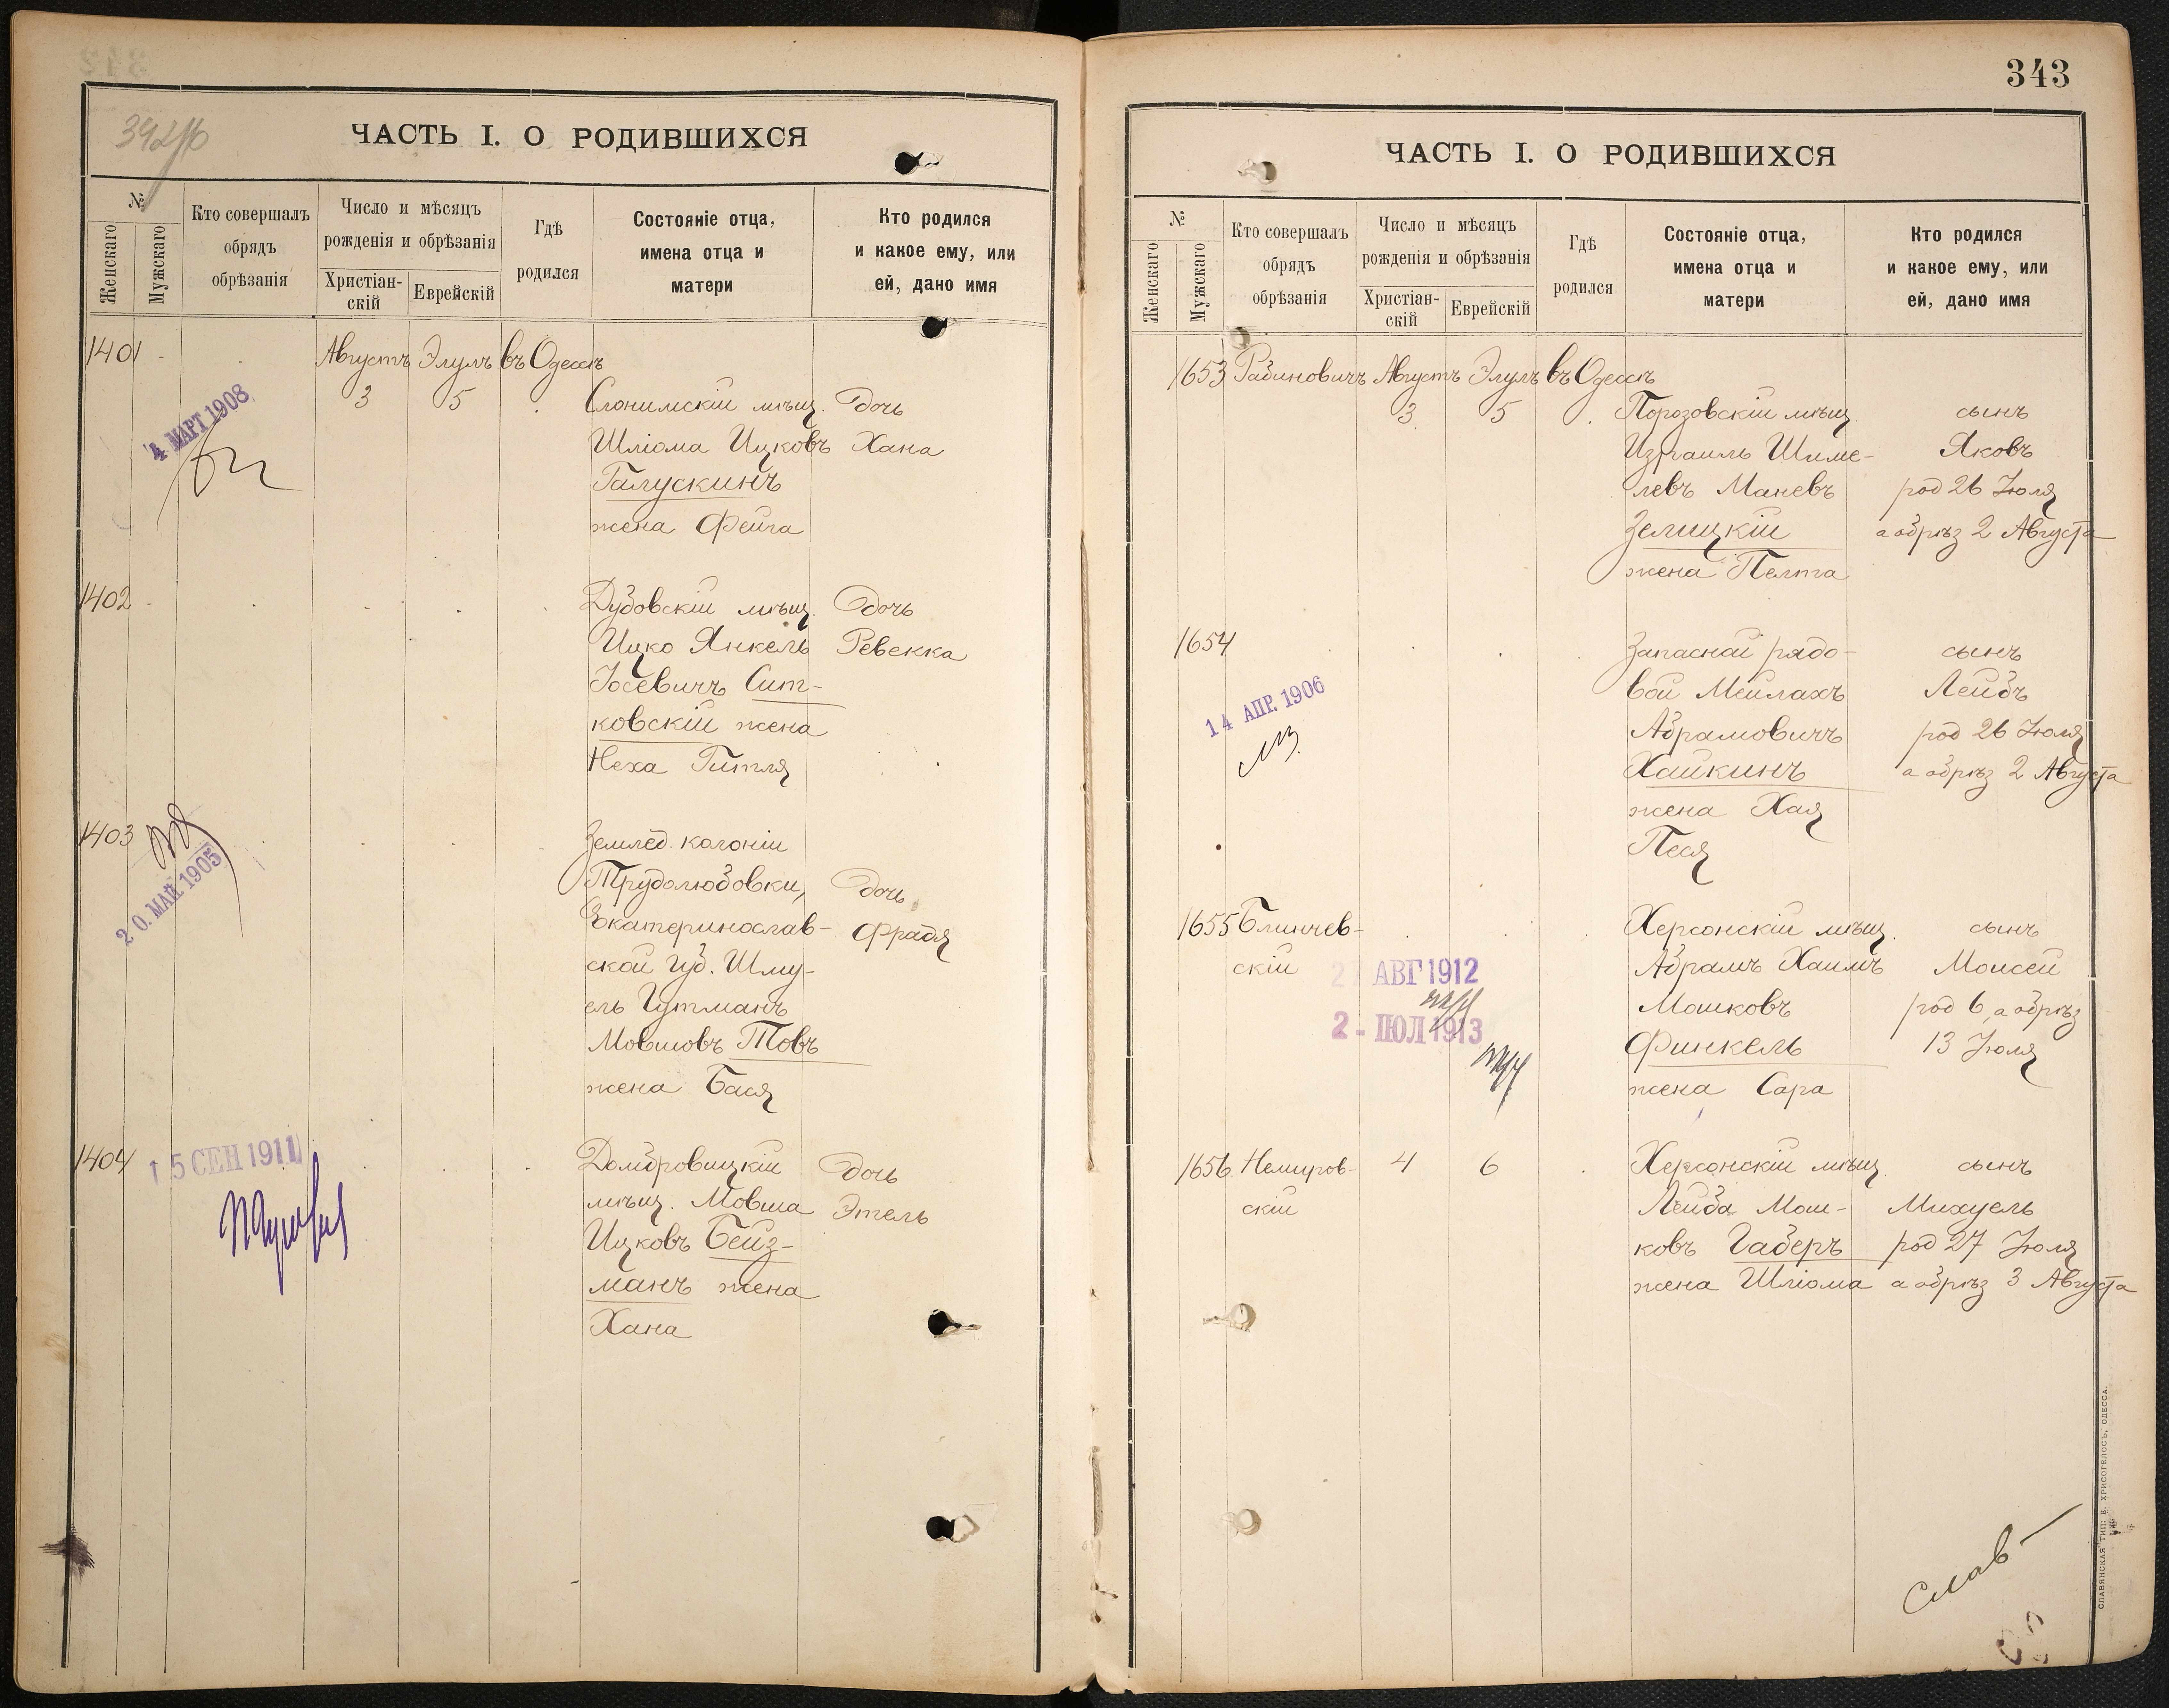 343
ЧАСТЬ I. О РОДИВШИХСЯ
№
Женскаго
Мужскаго
Кто совершалъ
обрядъ
обрѣзанія
Число и мѣсяцъ
рожденія и обрѣзанія
Христіан-
скій
Еврейскій
Гдѣ
родился
Состояніе отца,
имена отца и
матери
Кто родился
и какое ему, или
ей, дано имя
1401
4 МАРТ 1908
Августъ Элулъ въ Одессѣ
3 5
Слонимскій мѣщ. дочь
Шліома Ицковъ Хана
Галускинъ
жена Фейга
1402
Дубовскій мѣщ. дочь
Ицко Янкель Ревекка
Іосевичъ Сит-
ковскій жена
Неха Гитля
1403
20. МАЙ 1905
Землед. колоніи
Трудолюбовки, дочь
Екатеринослав- Фрадя
ской губ. Шму-
ель Гутманъ
Мовшовъ Товъ
жена Бася
1404
15 СЕН 1911
Домбровицкій дочь
мѣщ. Мовша Этель
Ицковъ Бейз-
манъ жена
Хана
ЧАСТЬ I. О РОДИВШИХСЯ
№
Женскаго
Мужскаго
Кто совершалъ
обрядъ
обрѣзанія
Число и мѣсяцъ
рожденія и обрѣзанія
Христіан-
скій
Еврейскій
Гдѣ
родился
Состояніе отца,
имена отца и
матери
Кто родился
и какое ему, или
ей, дано имя
1653 Рабиновичъ Августъ Элулъ въ Одессѣ
3 5 Порозовскій мѣщ. сынъ
Израиль Шиме- Яковъ
левъ Маневъ род 26 Іюля
Зелицкій а обрѣз 2 Августа
жена Пелта
1654 Запасной рядо- сынъ
вой Мейлахъ Лейбъ
14 АПР. 1906
Абрамовичъ род 26 Іюля
Хайкинъ а обрѣз 2 Августа
жена Хая
Песя
1655 Блинчев- Херсонскій мѣщ. сынъ
скій Абрамъ Хаимъ Моисей
2 АВГ 1912
Мошковъ род 6, а обрѣз
2 - ІЮЛ 1913
Финкель 13 Іюля
жена Сара
1656 Немиров- 4 6 Херсонскій мѣщ. сынъ
скій Лейба Мош- Михуель
ковъ Габеръ род 27 Іюля
жена Шліома а обрѣз 3 Августа
Слав-
СЛАВЯНСКАЯ ТИП. Е. ХРИСОГЕЛОСЪ, ОДЕССА.